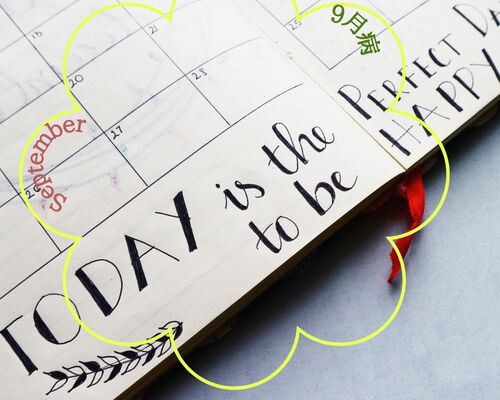 9月病
September
13
20
21
25
27
28
TODAY is the
PERFECT DA
to be
HAPPY